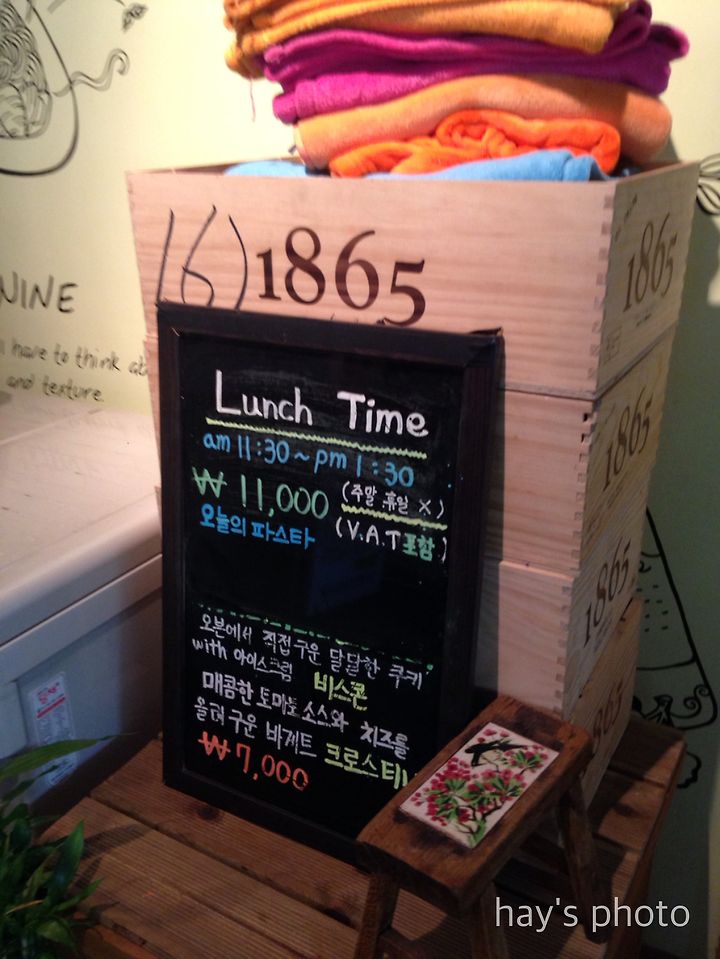 (6) 1865
1865
NINE
have to think
and texture.
1865
1865
Lunch Time
am 11:30 ~ pm 1:30
₩ 11,000 (주말 휴일 X)
오늘의 파스타 (V.A.T 포함)
오븐에서 직접 구운 달달한 쿠키
with 아이스크림 비스콘
매콤한 토마토 소스와 치즈를
올려 구운 바게트 크로스티니
₩ 7,000
hay's photo